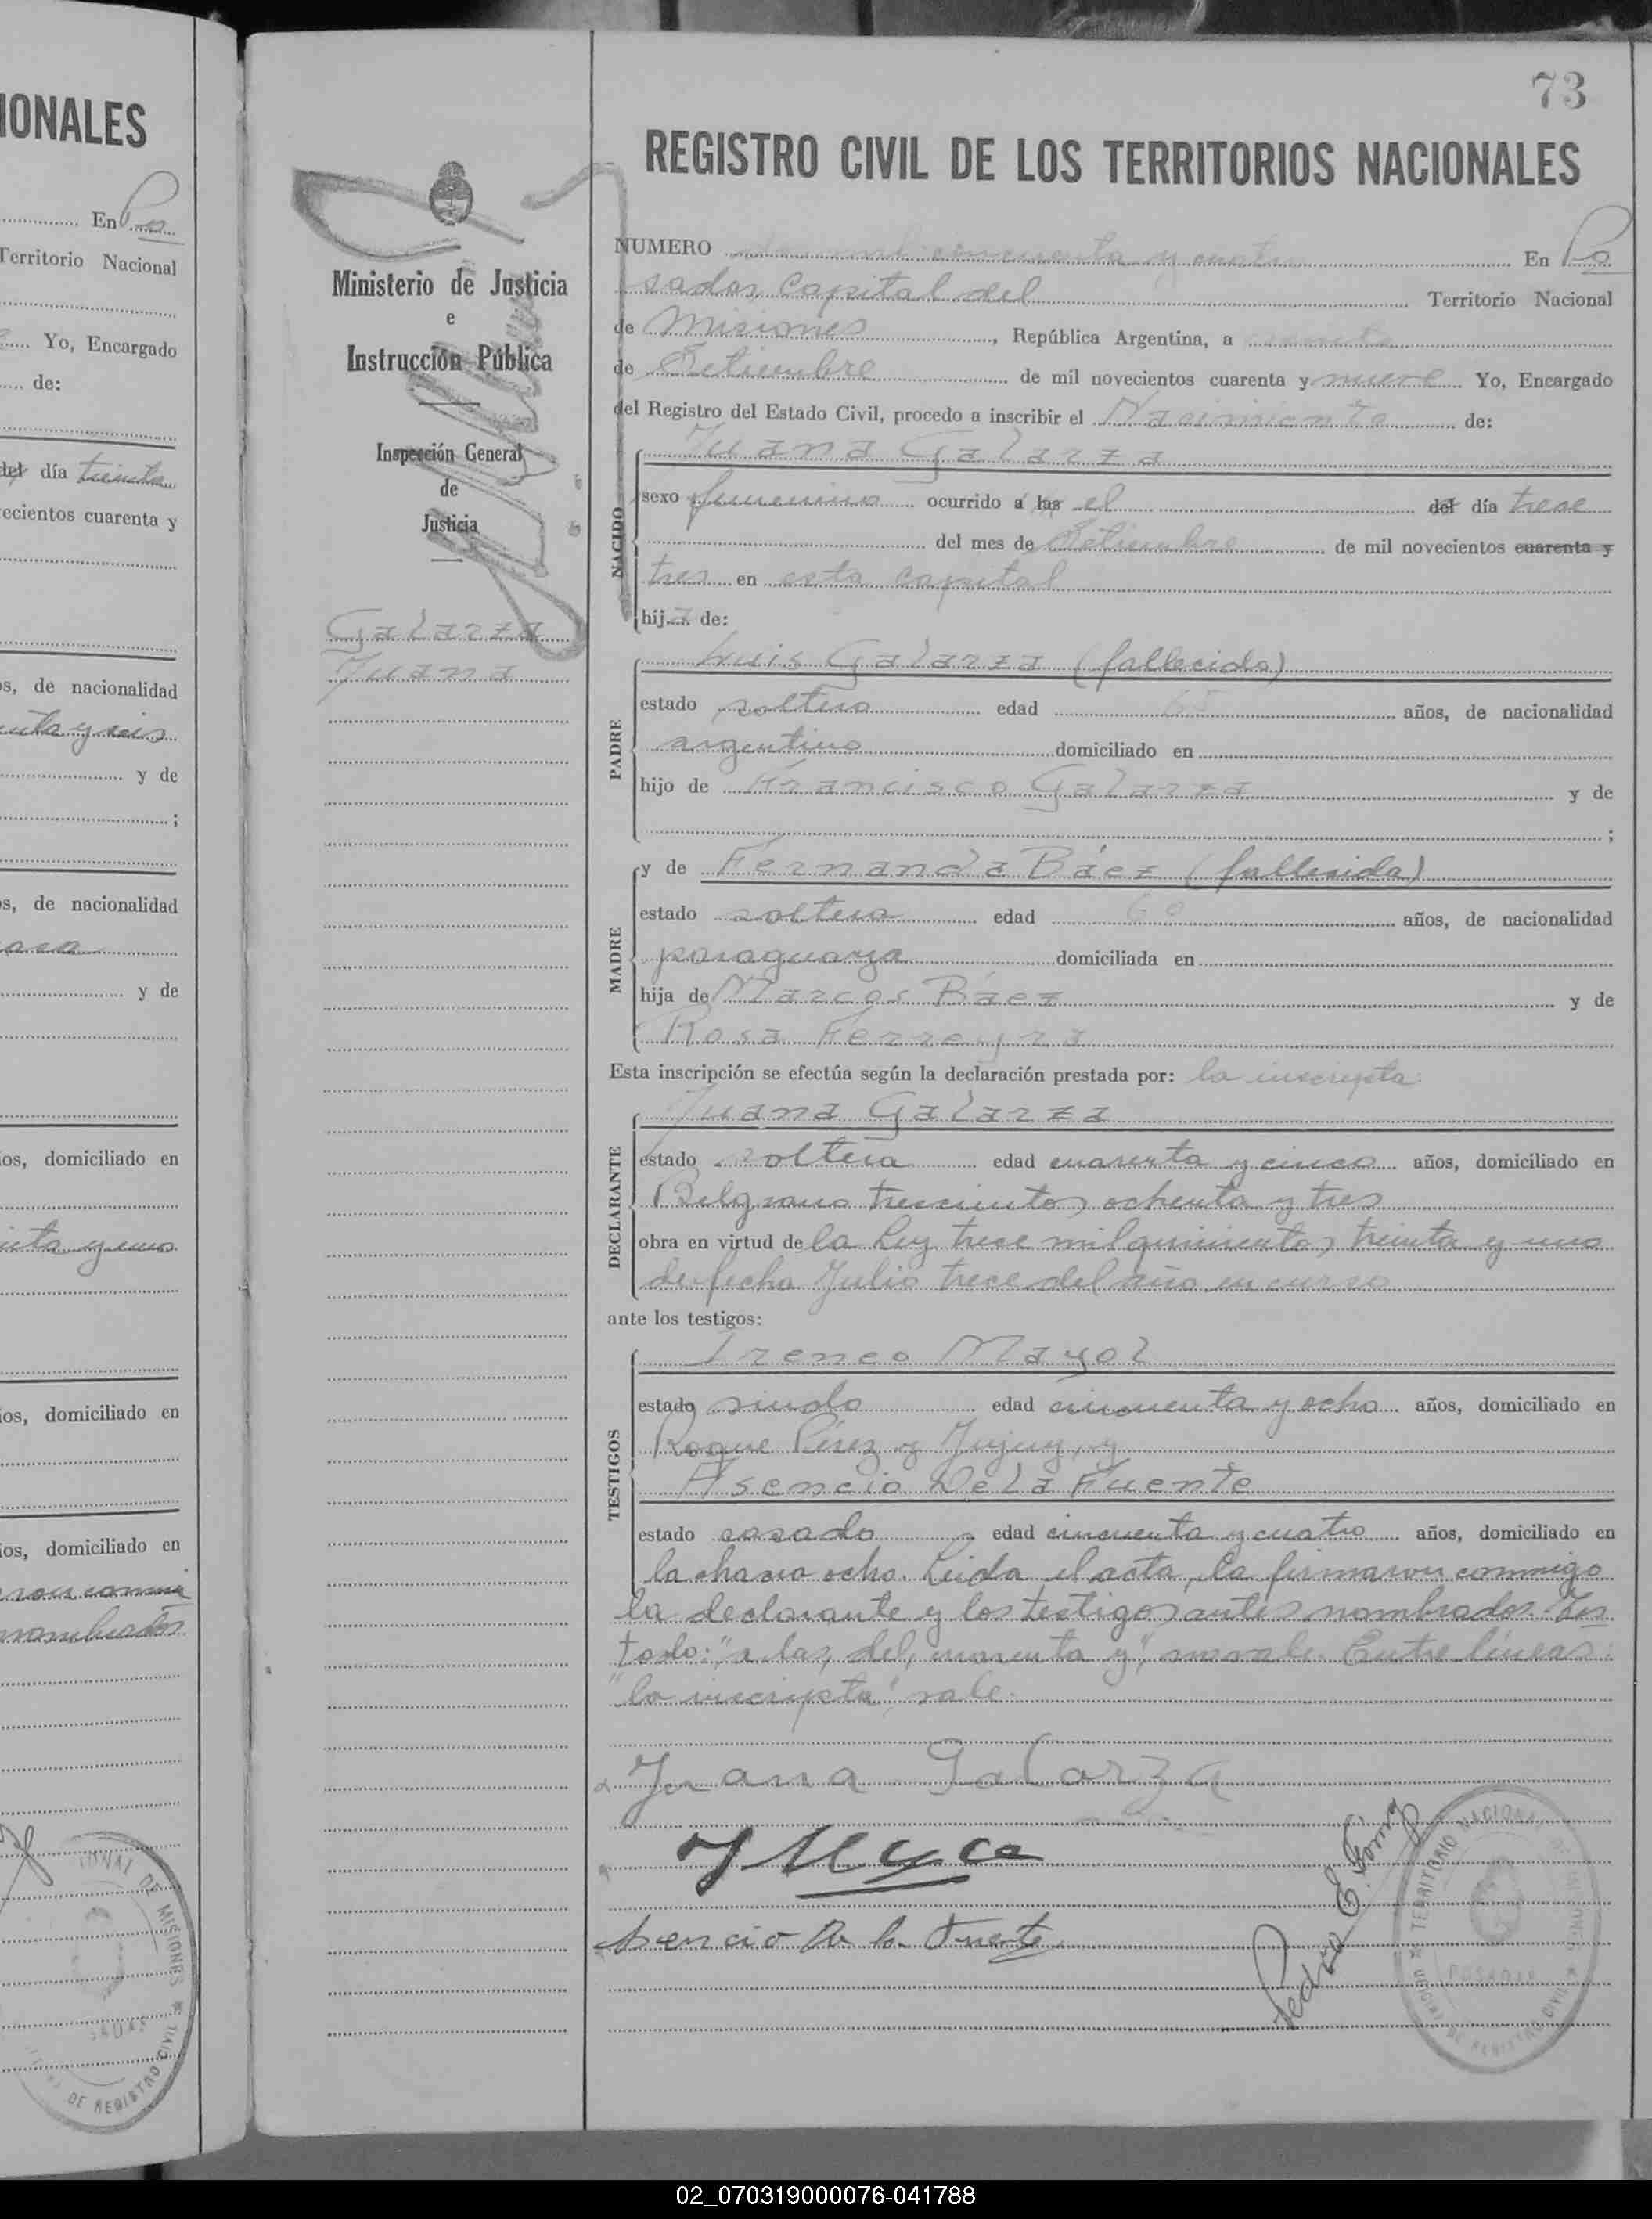 IONALES
En Po
Territorio Nacional
Yo, Encargado
de:
del día treinta
ecientos cuarenta y
s, de nacionalidad
y seis
y de
;
s, de nacionalidad
y de
os, domiciliado en
y uno
os, domiciliado en
os, domiciliado en
nombrados
73
REGISTRO CIVIL DE LOS TERRITORIOS NACIONALES
Ministerio de Justicia
e
Instrucción Pública
Inspección General
de
Justicia
Galarza
Juana
NUMERO dos mil cincuenta y cuatro En Po
sadas, Capital del Territorio Nacional
de Misiones, República Argentina, a
de Setiembre de mil novecientos cuarenta y nueve Yo, Encargado
del Registro del Estado Civil, procedo a inscribir el Nacimiento de:
NACIDO
Juana Galarza
sexo femenino ocurrido a las el del día trece
del mes de Setiembre de mil novecientos cuarenta y
tres en esta capital
hija de:
PADRE
Luis Galarza (fallecido)
estado soltero edad 65 años, de nacionalidad
argentino domiciliado en
hijo de Francisco Galarza y de
;
MADRE
y de Fernanda Báez (fallecida)
estado soltera edad 60 años, de nacionalidad
paraguaya domiciliada en
hija de Marcos Báez y de
Rosa Ferreyra
Esta inscripción se efectúa según la declaración prestada por: la inscripta
DECLARANTE
Juana Galarza
estado soltera edad cuarenta y cinco años, domiciliado en
Belgrano trescientos ochenta y tres
obra en virtud de la Ley trece mil quinientos treinta y uno
de fecha Julio trece del año en curso
ante los testigos:
TESTIGOS
Ireneo Mayol
estado viudo edad cincuenta y ocho años, domiciliado en
Roque Pérez y Jujuy, y
Asencio De La Fuente
estado casado edad cincuenta y cuatro años, domiciliado en
la chacra ocho. Leida el acta, la firmaron conmigo
la declarante y los testigos antes nombrados. Tes
tado: "a las, del, cuarenta y", no vale. Entre líneas:
"la inscripta" vale.
Juana Galarza
Asencio De la Fuente
Pedro E.
TERRITORIO NACIONAL DE MISIONES
POSADAS
OFICINA DE REGISTRO CIVIL
02_070319000076-041788